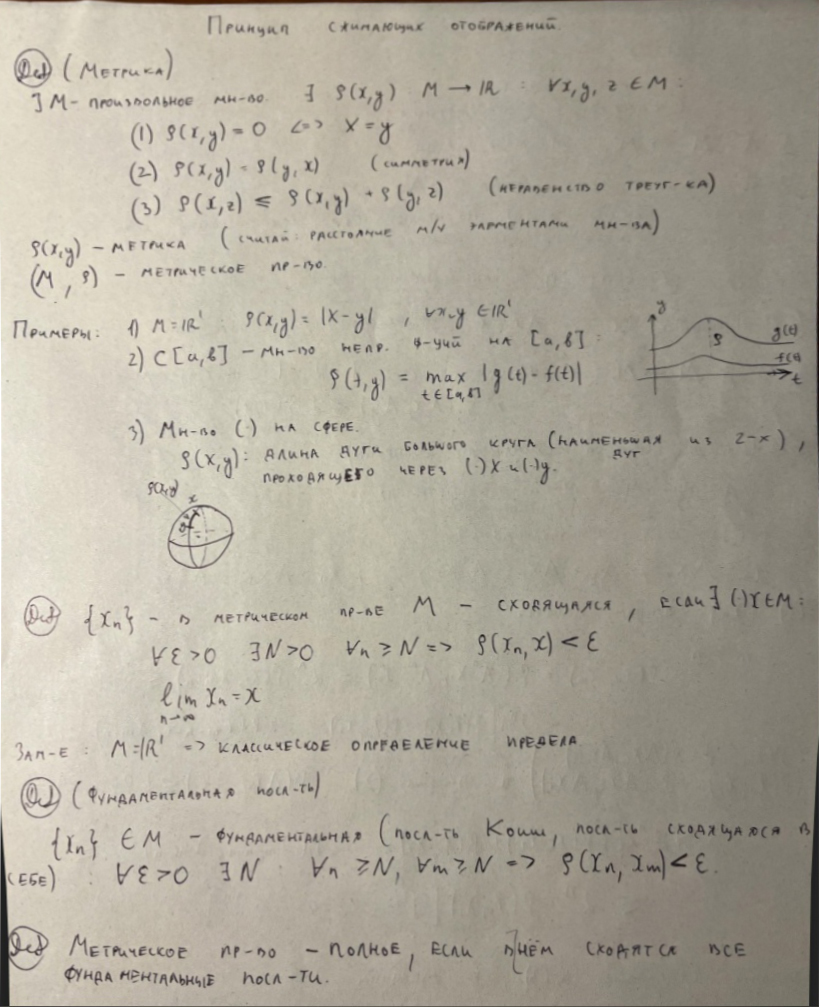 Принцип сжимающих отображений.
Def (Метрика)
] M - произвольное мн-во. ∃ ρ(x,y) M → ℝ : ∀x,y,z ∈ M :
(1) ρ(x,y) = 0 <=> x = y
(2) ρ(x,y) = ρ(y,x) (симметрия)
(3) ρ(x,z) ≤ ρ(x,y) + ρ(y,z) (неравенство треуг-ка)
ρ(x,y) - метрика (считай: расстояние м/у элементами мн-ва)
(M, ρ) - метрическое пр-во.
Примеры: 1) M = ℝ¹ : ρ(x,y) = |x-y| , ∀x,y ∈ ℝ¹
2) C[a,b] - мн-во непр. ф-ций на [a,b] :
ρ(f,g) = max |g(t) - f(t)|
t∈[a,b]
y
ρ
g(t)
f(t)
t
3) Мн-во (·) на сфере.
ρ(x,y): длина дуги большого круга (наименьшая из 2-х),
дуг
проходящего через (·)x и (·)y.
ρ(x,y)
x
y
Def {xₙ} - в метрическом пр-ве M - сходящаяся, если ∃ (·)x∈M :
∀ε>0 ∃N>0 ∀n ≥ N => ρ(xₙ,x) < ε
lim xₙ = x
n→∞
Зам-е: M=ℝ¹ => классическое определение предела
Def (Фундаментальная посл-ть)
{xₙ} ∈ M - фундаментальная (посл-ть Коши, посл-ть сходящаяся в
себе) : ∀ε>0 ∃N ∀n ≥ N, ∀m ≥ N => ρ(xₙ, xₘ) < ε.
Def Метрическое пр-во - полное, если в нём сходятся все
фундаментальные посл-ти.